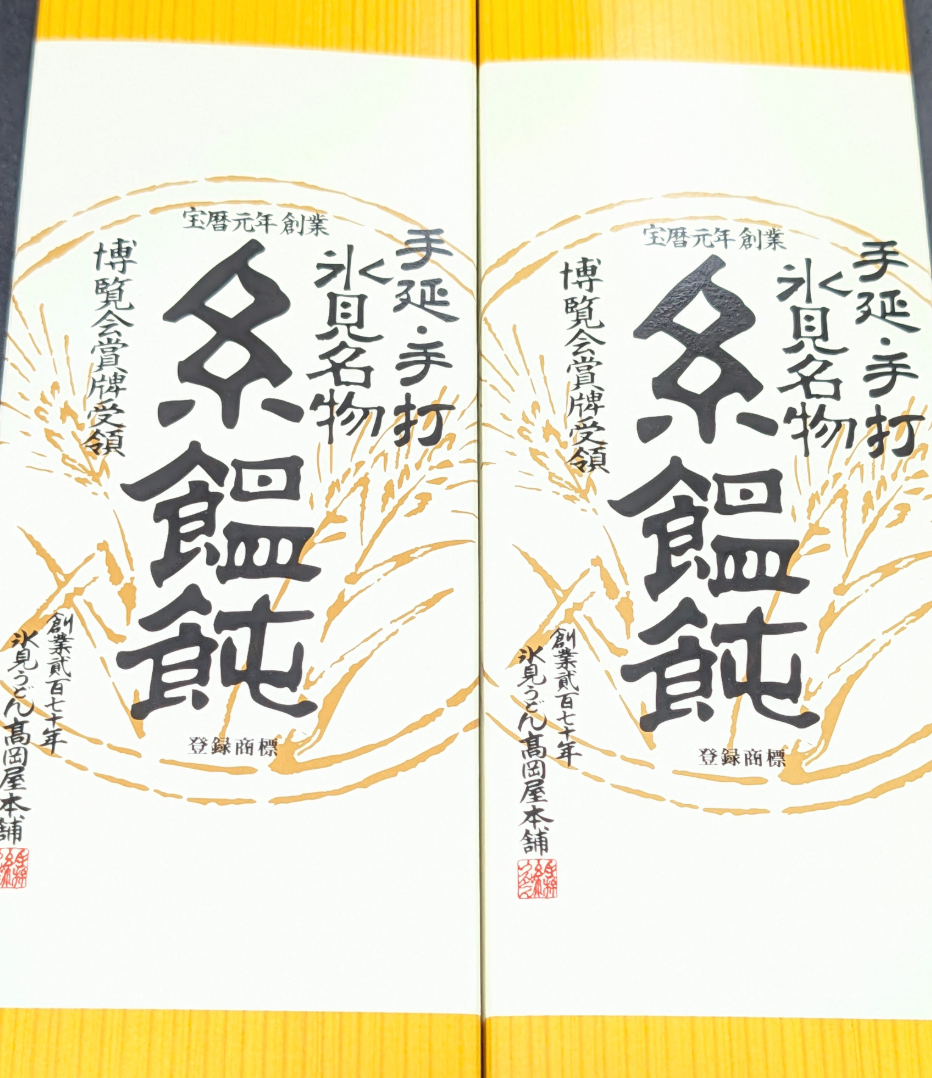 宝暦元年創業
手延・手打
氷見名物
糸饂飩
博覧会賞牌受領
創業貳百七十年
氷見うどん髙岡屋本舗
登録商標
宝暦元年創業
手延・手打
氷見名物
糸饂飩
博覧会賞牌受領
創業貳百七十年
氷見うどん髙岡屋本舗
登録商標